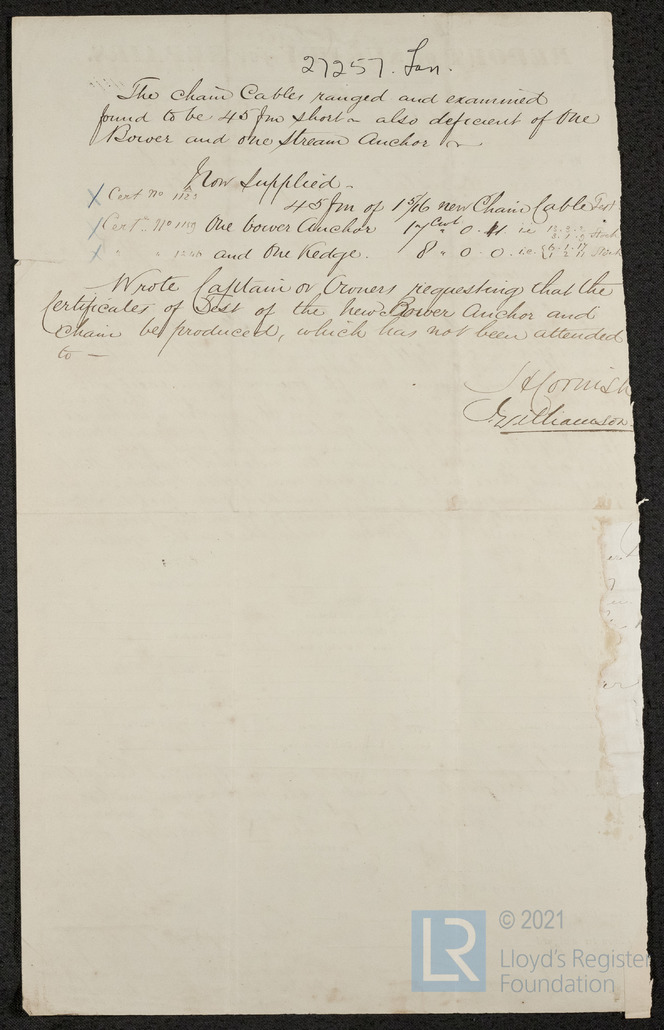 27257. Lon.
The Chain Cables ranged and examined
found to be 45 fm short ~ also deficient of One
Bower and one Stream Anchor ~
Now Supplied ~
X Cert No 1123 45 fm of 1 5/16 new Chain Cable Test
X Cert No 1189 One bower Anchor 17 Cwt 0 . 11 . i.e Stock
X " " and One Kedge . 8 " 0 . 0 . i.e. 6. 1. 17 Stock
Wrote Captain or Owners requesting that the
Certificates of Test of the new Bower Anchor and
Chain be produced, which has not been attended
to ~
Cornish
Williamson
© 2021
LR
Lloyd's Register
Foundation